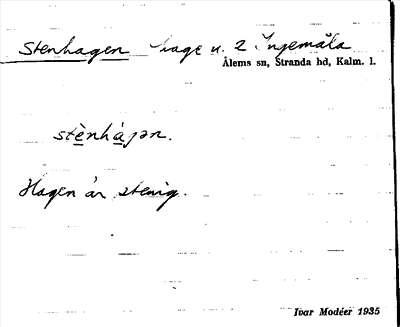 Stenhagen hage u. 2 Ingemåla
Ålems sn, Stranda hd, Kalm. l.
stènhàgən.
Hagen är stenig.
Ivar Modéer 1935